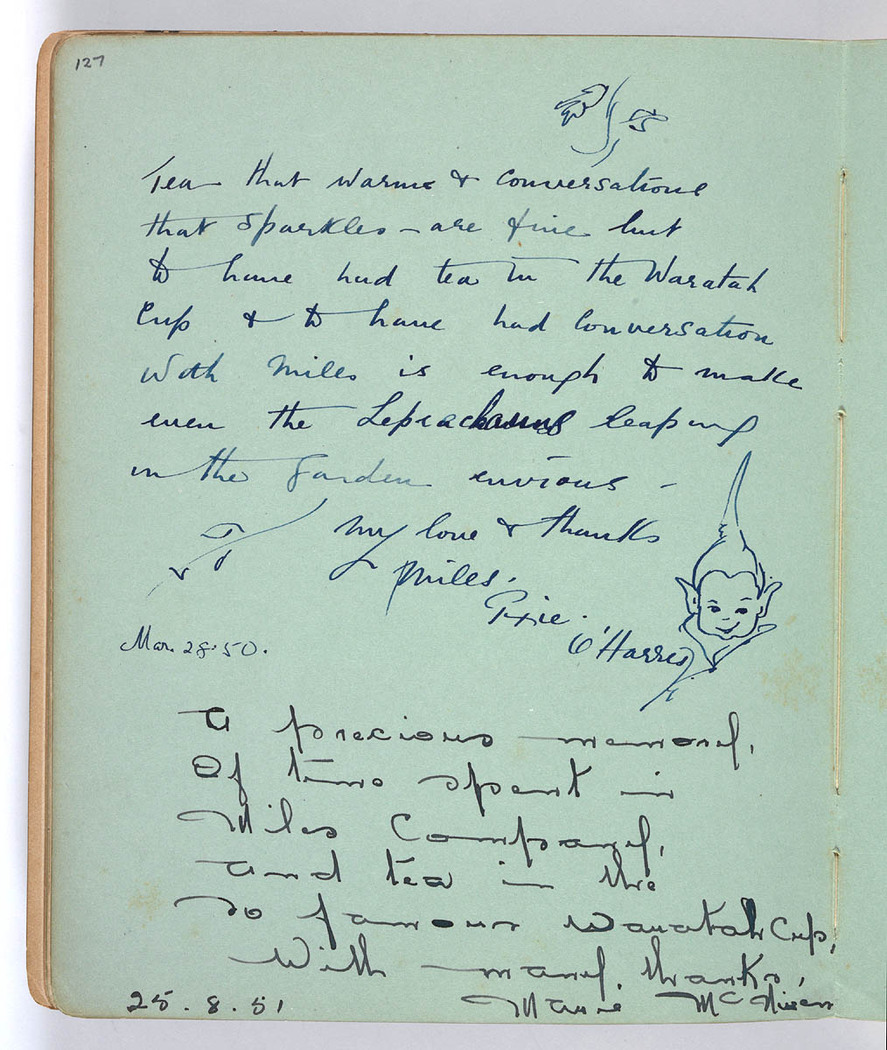 127
Tea that warms & conversations
that sparkles - are fine but
to have had tea in the Waratah
Cup & to have had Conversation
with Miles is enough to make
even the Leprachauns leaping
in the garden envious -
My love & thanks
Miles.
Pixie
O'Harris
Mar. 28.50.
A precious memory,
Of time spent in
Miles Company,
and tea in the
so famous Waratah Cup,
With many thanks,
25.8.51